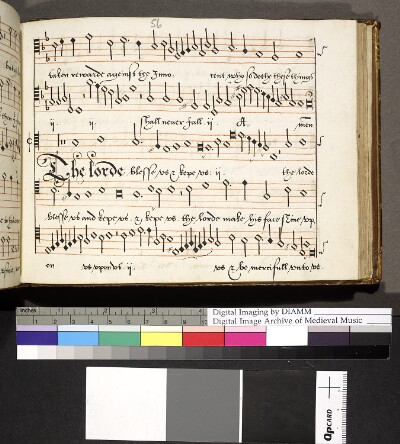 56
taken rewarde against the Inno cent who so dothe these things
ij. ij. shall never fall ij A men
The lorde blesse vs & kepe vs ij. the lorde
blesse vs and kepe vs. & kepe vs the lorde make his face shine vp
on vs vpon vs ij. vs & be mercifull vnto vs
inches
Digital Imaging by DIAMM
Digital Image Archive of Medieval Music
QPCARD